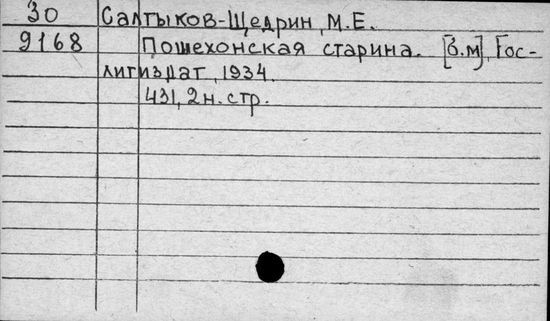 30 Салтыков-Щедрин, М.Е.
9168 Пошехонская старина. [б.м], Гос-
литиздат, 1934.
431, 2 н. стр.